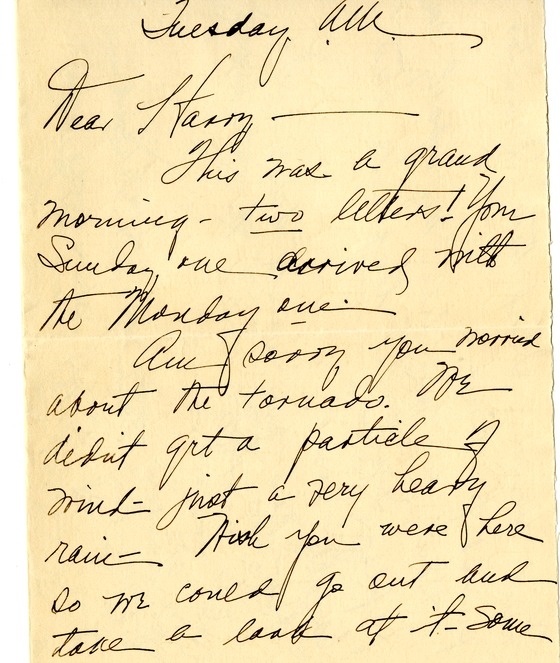 Tuesday A.M.
Dear Harry —
This was a grand
morning - two letters! Your
Sunday one arrived with
the Monday one.
Am sorry you worried
about the tornado. We
didn't get a particle of
wind - just a very heavy
rain - Wish you were here
so we could go out and
take a look at it - Some